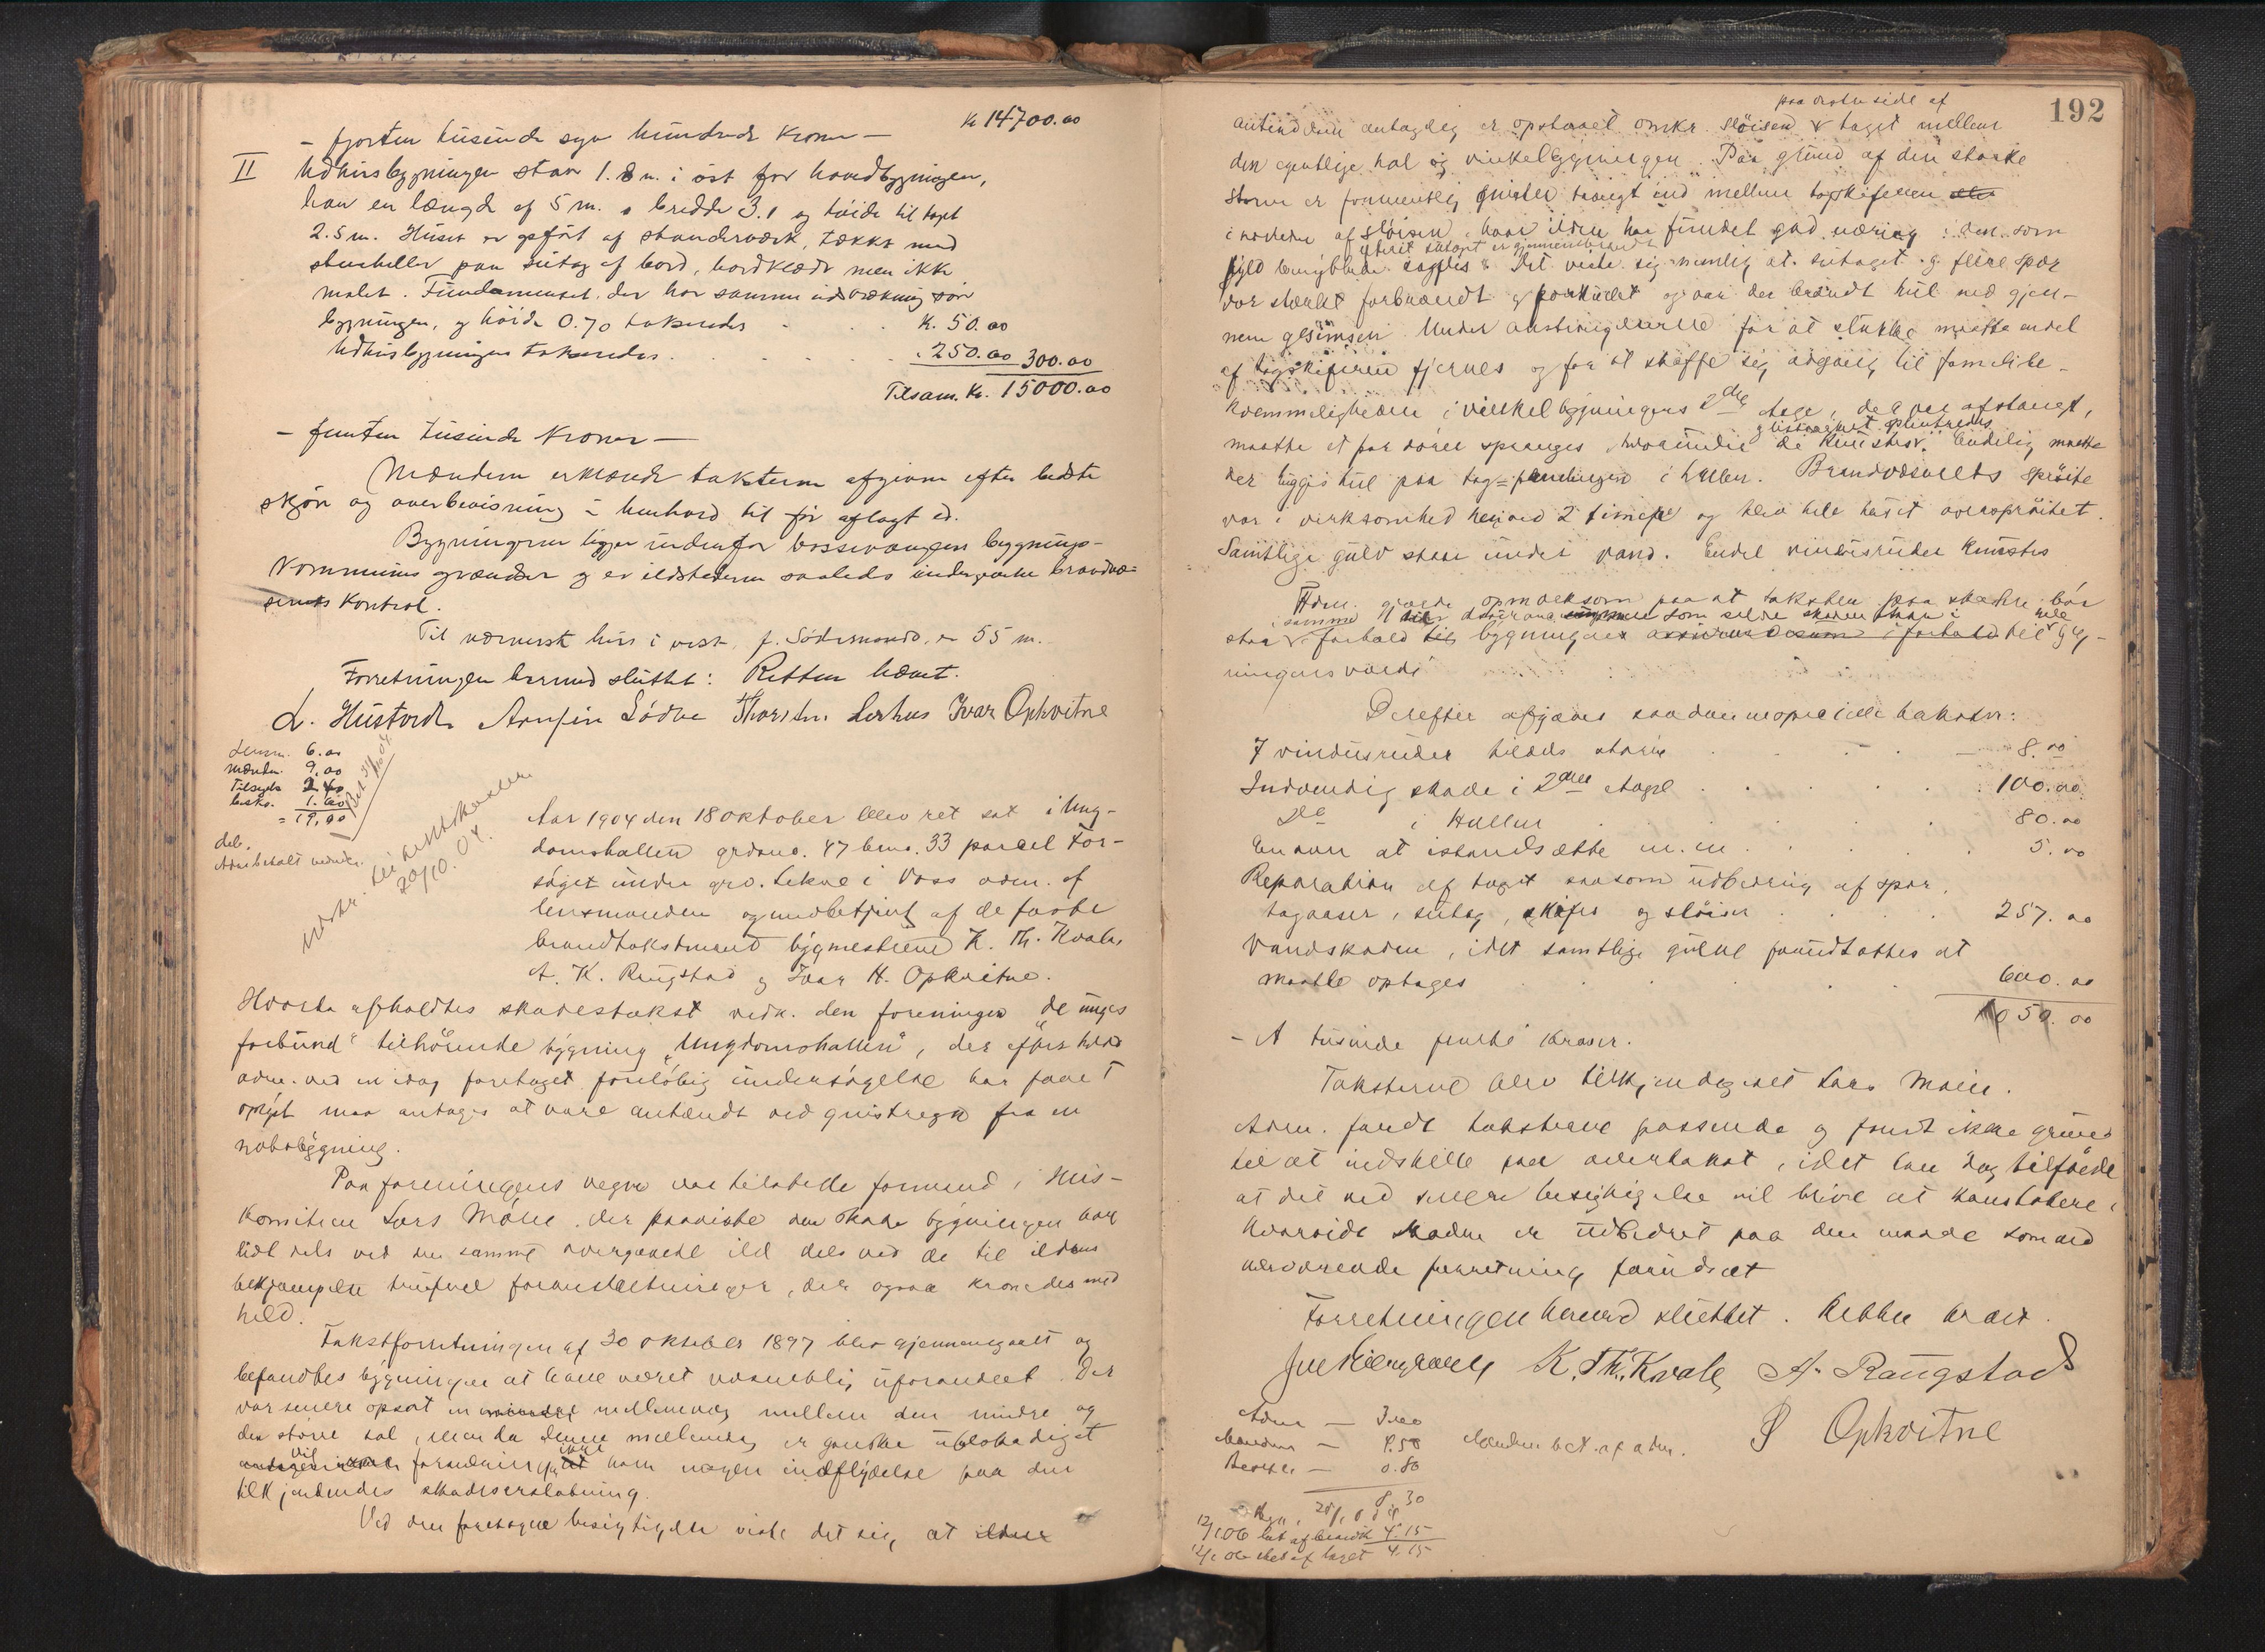 Kr 14700.00
- fjorten tusinde syv hundrede kroner -
II Udhusbygningen staar 1.8 m. i øst for hovedbygningen,
har en længde af 5 m. a bredde 3.1 og høide til taget
2.5 m. Huset er opført af standerværk, tækket med
stenheller paa sutag af bord, bordklædt men ikke
malet. Fundamentet, der har samme udstrækning som
bygningen, og høide 0.70 takseredes . . . K. 50.00
Udhusbygningen takseredes . . . . . . 250.00 300.00
Tilsam. Kr. 15000.00
- femten tusinde kroner -
Mændene erklærede taksterne afgivne efter bedste
skjøn og overbevisning i henhold til før aflagt ed.
Bygningerne ligger indenfor Vossevangens bygnings-
kommunes grændser og er ildstederne saaledes undergivne brandvæ-
senets kontrol.
Til nærmeste hus i vest, f. Södermands, er 55 m.
Forretningen hermed sluttet: Retten hævet.
L. Hustoedt Arnfin Lödve Thorstein Lirhus Ivar Opkvitne
Lensm. 6.00
Mændn. 9.00
Tilsagte 2.40
besk. 1.60
= 19.00
deb.
Udskr. til 20/10.04.
Aar 1904 den 18 oktober blev ret sat i Ung-
domshallen grdsno. 47 brno. 33 parcel For-
søget under grd. Lekve i Voss adm. af
lensmanden og medbetjent af de faste
brandtakstmænd bygmestrene K. Th. Kvale,
A. K. Rangstad og Ivar H. Opkvitne.
Hvorda afholdtes skadestakst vedk. den foreningen "De unges
forbund" tilhørende bygning "Ungdomshallen", der efter hvad
adm. ved en idag foretaget foreløbig undersøgelse har faaet
oplyst maa antages at være antændt ved gnistregn fra en
nabobygning.
Paa foreningens vegne var tilstede formand i hus-
komiteen Lars Møen, der paaviste den skade bygningen har
lidt dels ved den samme overgaaede ild dels ved de til ildens
bekjæmpelse trufne foranstaltninger, der ogsaa kronedes med
held.
Takstforretningen af 30 oktober 1897 blev gjennemgaaet og
befandtes bygningen at have været væsentlig uforandret. Der
var senere opsat en mindre mellemvæg mellem den mindre og
den større sal, men da denne mellemvæg er ganske ubeskadiget
vil forandringen ikke have nogen indflydelse paa den
tilkjendendes skadeserstatning.
Ved den foretagne besigtigelse viste det sig, at ildens
192
paa østre side af
antændelse antagelig er opstaaet omkr. sløisen & taget mellem
den egentlige hal og vinkelbygningen. Paa grund af den stærke
storm er formentlig gnister trængt ind mellem tagskiferen
i nærheden af sløisen, hvor ilden har fundet god næring i den som
ethvert sutaget er gjennembrændt
fyld benyttede sagflis & Det viste sig nemlig at sutaget og flere spær
var stærkt forbrændt & forkullet og var der brændt hul ned gjen-
nem gesimsen. Under anstrengelserne for at slukke maatte endel
af tagskiferen fjernes og for at skaffe sig adgang til familie-
kvemmeligheden i vinkelbygningens 2den etage, der var afstængt,
maatte et par døre sprænges hvorunder de knustes & listværket splintredes. Endelig maatte
der hugges hul paa tag-panelingen i hallen. Brandvæsenets sprøite
var i virksomhed henved 2 timer og blev hele taget oversprøitet.
Samtlige gulv staar under vand. Endel vindusruder knustes
Adm. gjorde opmærksom paa at taksten paa skaden bør
staa i samme forhold til bygningens assurancesum som selve skaden staar i til hele byg-
ningens værdi
Derefter afgaves saadanne specielle takster:
7 vindusruder tildels større . . . 8.00
Indvendig skade i 2den etage . . . . . 100.00
Do i Hallen . . . . . 80.00
En ovn at istandsætte m.m. . . . . 5.00
Reparation af taget saasom udbedring af spær,
tagaaser, sutag, skifer og sløiser . . . . 257.00
Vandskaden, idet samtlige gulve forudsattes at
maatte optages . . . . 600.00
1050.00
- Et tusinde femti kroner.
Taksterne blev tilkjendegivet Lars Møen.
Adm. fandt taksterne passende og fandt ikke grund
til at indstille paa overtakst, idet han dog tilføiede
at det ved senere besigtigelse vil blive at konstatere,
hvorvidt skaden er udbedret paa den maade som ved
nærværende forretning forudsat
Forretningen hermed sluttet. Retten hævet.
K. Th. Kvale A. Rangstad
I Opkvitne
Adm — 3.00
Mændene — 4.50
Besigt. — 0.80
8.30
Mændene bet. af adm.
12/1 06 bet af brandk 4.15
12/1 06 bet af laget 4.15